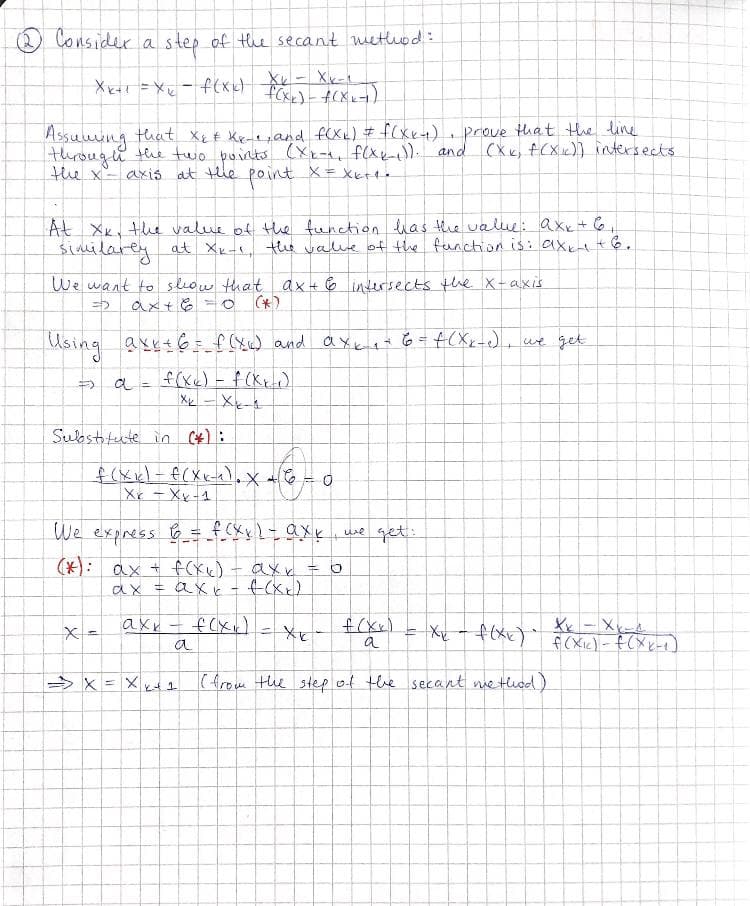 ② Consider a step of the secant method:
x_{k+1} = x_k - f(x_k) (x_k - x_{k-1}) / (f(x_k) - f(x_{k-1}))
Assuming that x_k ≠ x_{k-1}, and f(x_k) ≠ f(x_{k-1}), prove that the line
through the two points (x_{k-1}, f(x_{k-1})). and (x_k, f(x_k)) intersects
the x-axis at the point x = x_{k+1}.
At x_k, the value of the function has the value: ax_k + b,
similarey at x_{k-1}, the value of the function is: ax_{k-1} + b.
We want to show that ax + b intersects the x-axis
⇒ ax + b = 0 (*)
Using ax_k + b = f(x_k) and ax_{k-1} + b = f(x_{k-1}), we get
⇒ a = (f(x_k) - f(x_{k-1})) / (x_k - x_{k-1})
Substitute in (*):
(f(x_k) - f(x_{k-1})) / (x_k - x_{k-1}) · x + b = 0
We express b = f(x_k) - ax_k, we get:
(*): ax + f(x_k) - ax_k = 0
ax = ax_k - f(x_k)
x = (ax_k - f(x_k)) / a = x_k - f(x_k) / a = x_k - f(x_k) · (x_k - x_{k-1}) / (f(x_k) - f(x_{k-1}))
⇒ x = x_{k+1} (from the step of the secant method)